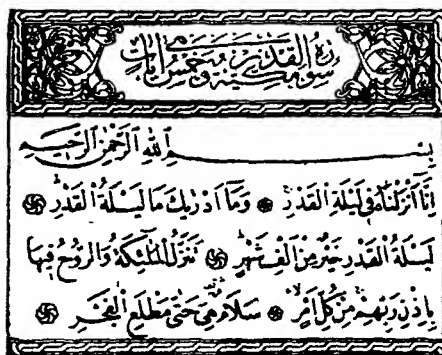 سورة القدر مكية وهي خمس آيات
بسم الله الرحمن الرحيم
إنا أنزلناه في ليلة القدر وما أدريك ما ليلة القدر
ليلة القدر خير من ألف شهر تنزل الملائكة والروح فيها
بإذن ربهم من كل أمر سلام هي حتى مطلع الفجر